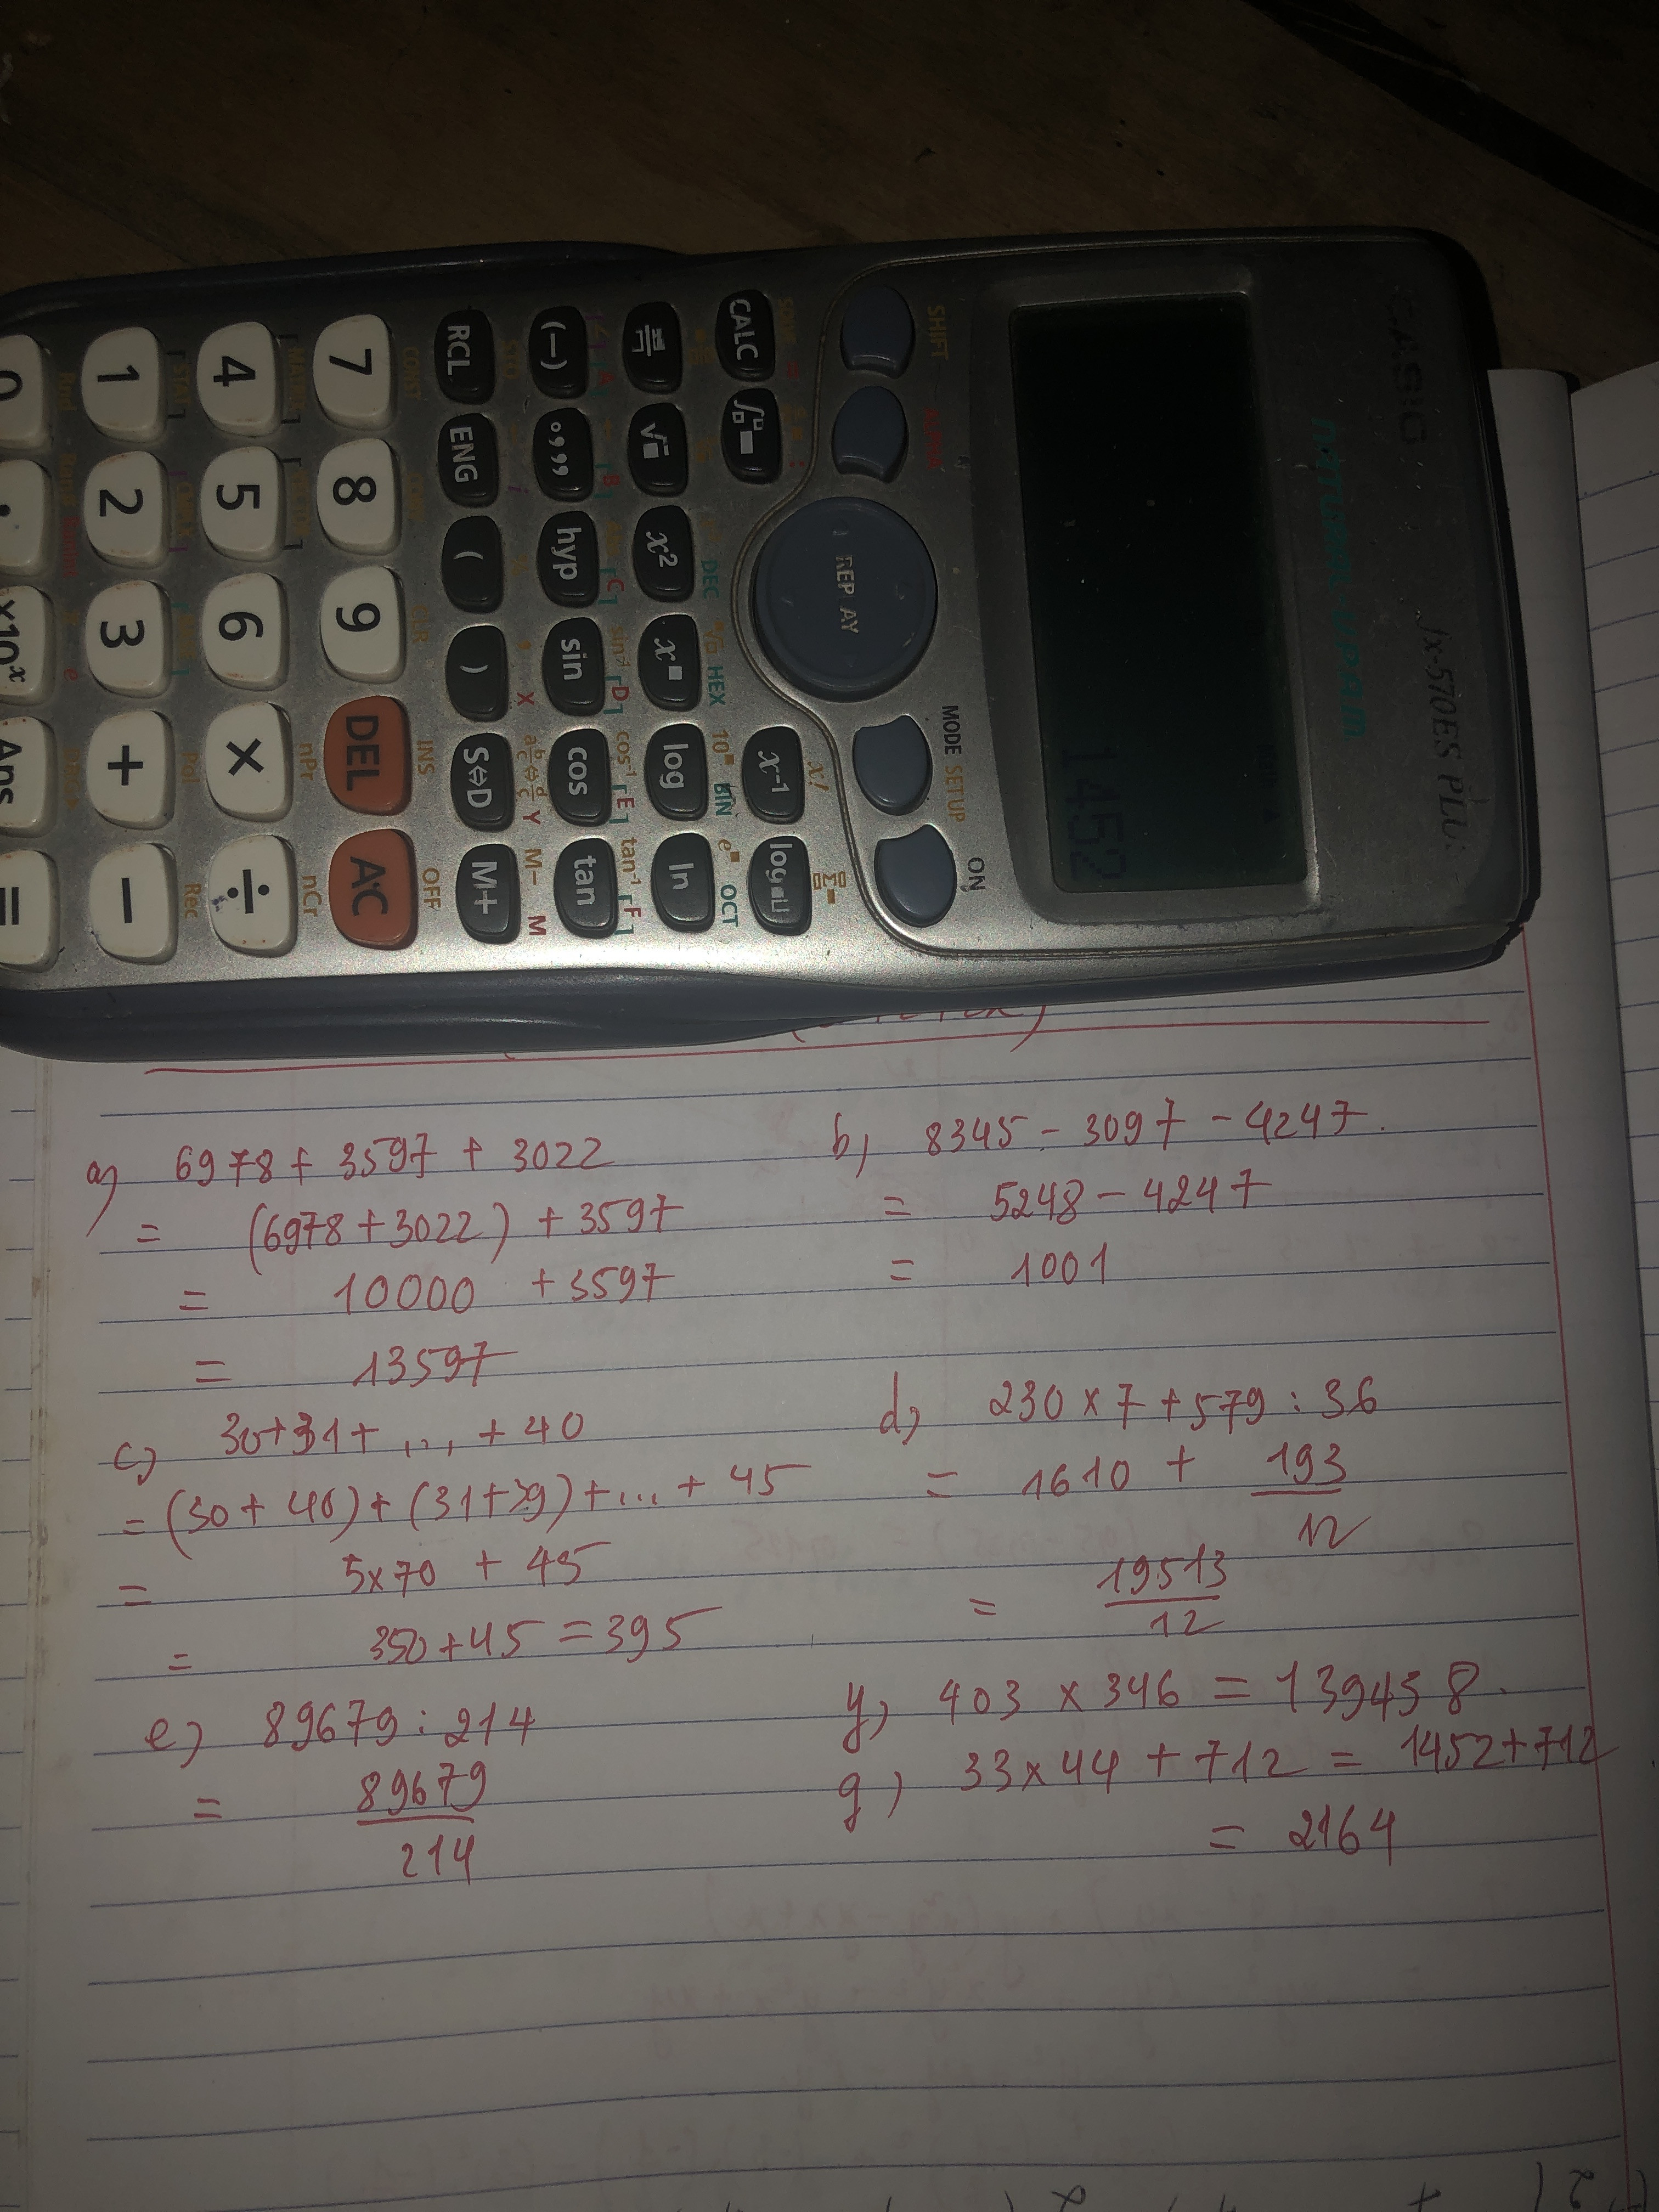 CASIO
fx-570ES PLUS
NATURAL-V.P.A.M.
1452
SHIFT ALPHA MODE SETUP ON
REPLAY
CALC ∫ x⁻¹ log
√ x² x log ln
DEC HEX BIN OCT
(−) °,,, hyp sin cos tan
RCL ENG ( ) S⇔D M+
7 8 9 DEL AC
4 5 6 × ÷
1 2 3 + −
0 . ×10ˣ Ans =
a) 6978 + 3597 + 3022
= (6978 + 3022) + 3597
= 10000 + 3597
= 13597
b, 8345 - 3097 - 4247.
= 5248 - 4247
= 1001
c) 30+31+ ... + 40
= (30 + 40) + (31+39) +... + 45
= 5x70 + 45
= 350+45 = 395
d, 230 x 7 + 579 : 36
= 1610 + 193/12
= 19513/12
e) 89679 : 214
= 89679/214
y, 403 x 346 = 139438.
g, 33x44 + 712 = 1452+712
= 2164